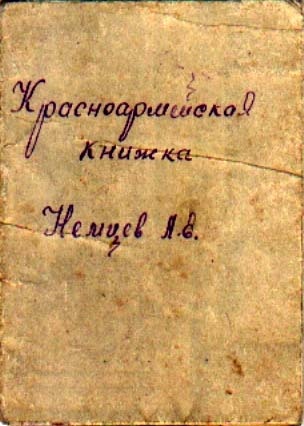 Красноармейская
книжка
Немцев А.В.